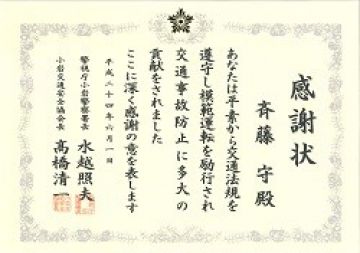 感謝状
斉藤 守殿
あなたは平素から交通法規を
遵守し模範運転を励行され
交通事故防止に多大の
貢献をされました
ここに深く感謝の意を表します
平成二十四年六月一日
警視庁小岩警察署長 水越照夫
小岩交通安全協会長 高橋清一